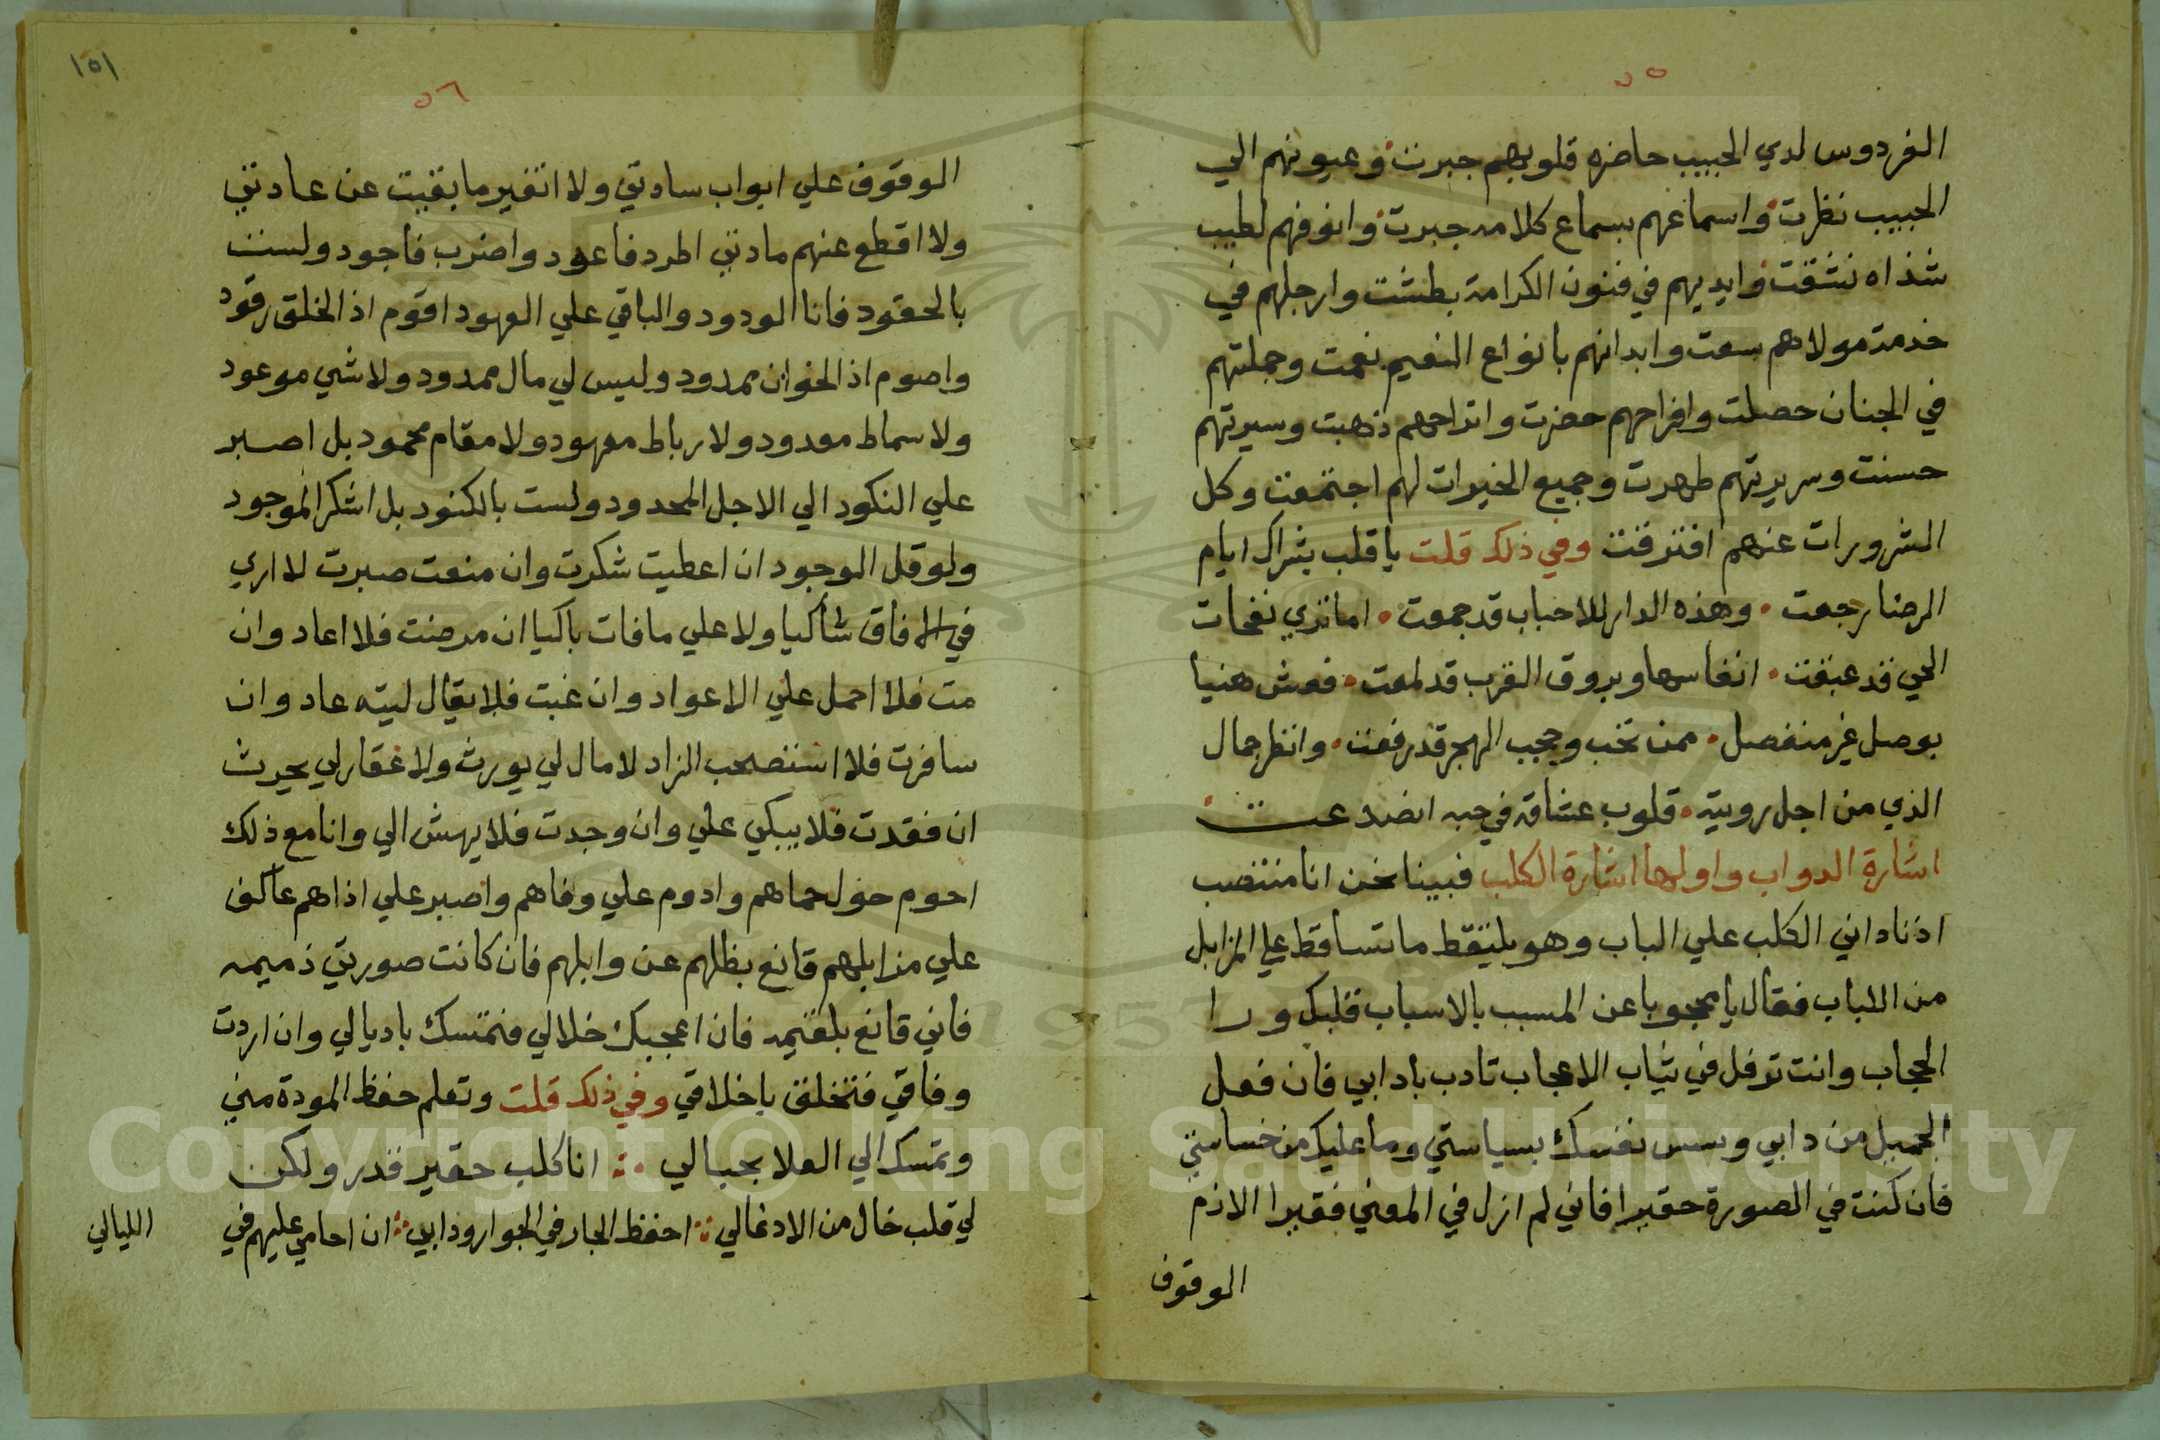 ٥٥
الفردوس لدي الحبيب حاضره قلوبهم جبرت وعيونهم الي
الحبيب نظرت واسماعهم بسماع كلامه جبرت وانوفهم لطيب
شذاه نشقت وايديهم في فنون الكرامة بطشت وارجلهم في
خدمة مولاهم سعت وابدانهم بانواع النعيم نعمت وجملتهم
في الجنان حصلت وافراحهم حضرت واتراحهم ذهبت وسيرتهم
حسنت وسريرتهم طهرت وجميع الخيرات لهم اجتمعت وكل
الشرورات عنهم افترقت وفي ذلك قلت يا قلب بشراك ايام
الرضا رجعت • وهذه الدار للاحباب قد جمعت • اما تري نفحات
الحي قد عبقت • انفاسها وبروق القرب قد لمعت • فعش هنيا
بوصل غير منفصل • ممن تحب وحجب الهجر قد رفعت • وانظر جمال
الذي من اجل رويته • قلوب عشاقه في حبه انصدعت •
اشارة الدواب واولها اشارة الكلب فبينا نحن انا منتصب
اذ ناداني الكلب علي الباب وهو يلتقط ما تساقط علي المزابل
من اللباب فقال يا محجوبا عن المسبب بالاسباب قلبك ورا
الحجاب وانت ترفل في ثياب الاعجاب تادب بادابي فان فعل
الجميل من دابي وسس نفسك بسياستي وما عليك من خساستي
فان كنت في الصورة حقيرا فاني لم ازل في المعني فقيرا الازم
الوقوف
١٥١
٥٦
الوقوف علي ابواب سادتي ولا اتغير ما بقيت عن عادتي
ولا اقطع عنهم مادتي اطرد فاعود واضرب فاجود ولست
بالحقود فانا الودود والباقي علي العهود اقوم اذ الخلق رقود
واصوم اذ الخوان ممدود وليس لي مال ممدود ولا شي موعود
ولا سماط معدود ولا رباط معهود ولا مقام محمود بل اصبر
علي النكود الي الاجل المحدود ولست بالكنود بل اشكر الموجود
ولو قل الوجود ان اعطيت شكرت وان منعت صبرت لا اري
في الافاق شاكيا ولا علي ما فات باكيا ان مرضت فلا اعاد وان
مت فلا احمل علي الاعواد وان غبت فلا يقال ليته عاد وان
سافرت فلا استصحب الزاد لا مال لي يورث ولا عقار لي يحرث
ان فقدت فلا يبكي علي وان وجدت فلا يهش الي وانا مع ذلك
احوم حول حماهم وادوم علي وفاهم واصبر علي اذاهم عاكف
علي مزابلهم قانع بظلهم عن وابلهم فان كانت صورتي ذميمه
فاني قانع بلقيمه فان اعجبك خلالي فتمسك باديالي وان اردت
وفاقي فتخلق باخلاقي وفي ذلك قلت وتعلم حفظ المودة مني
وتمسك الي العلا بحبالي ؞ انا كلب حقير قدر ولكن
لي قلب خال من الادغالي ؞ احفظ الجار في الجوار ودابي ؞ ان احامي عليهم في
الليالي